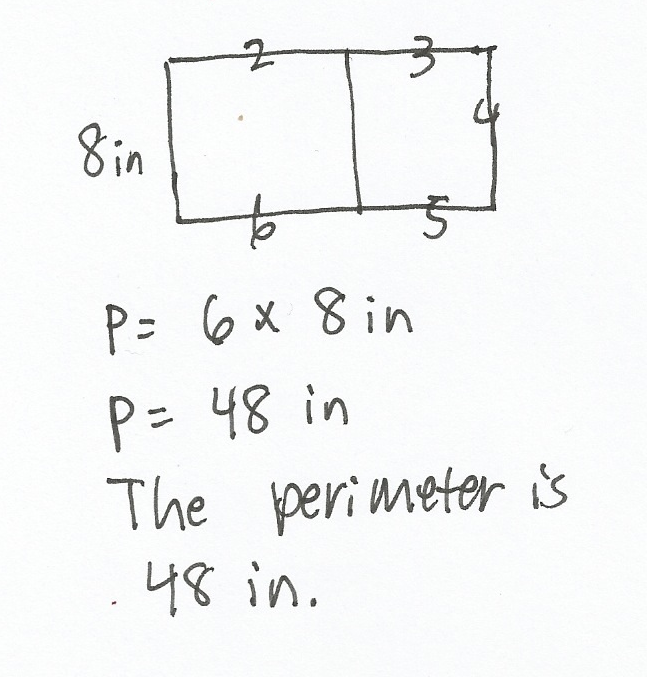 2 3
4
8 in
6 5
P= 6 x 8 in
P= 48 in
The perimeter is
48 in.